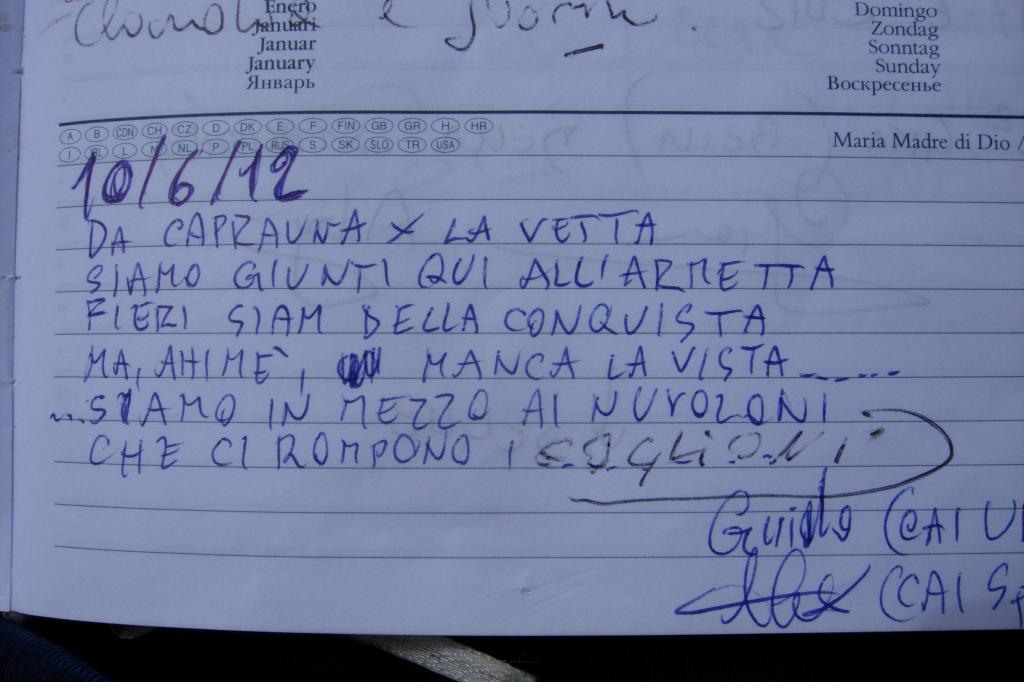 Enero
Januari
Januar
January
Январь
Domingo
Zondag
Sonntag
Sunday
Воскресенье
e
A B CON CH CZ D DK E F FIN GB GR H HR
I L N NL P PL RUS S SK SLO TR USA
Maria Madre di Dio /
10/6/12
DA CAPRAUNA X LA VETTA
SIAMO GIUNTI QUI ALL'ARMETTA
FIERI SIAM DELLA CONQUISTA
MA, AHIMÈ, MANCA LA VISTA ......
...SIAMO IN MEZZO AI NUVOLONI
CHE CI ROMPONO I COGLIONI
Guido (CAI U
(CAI S